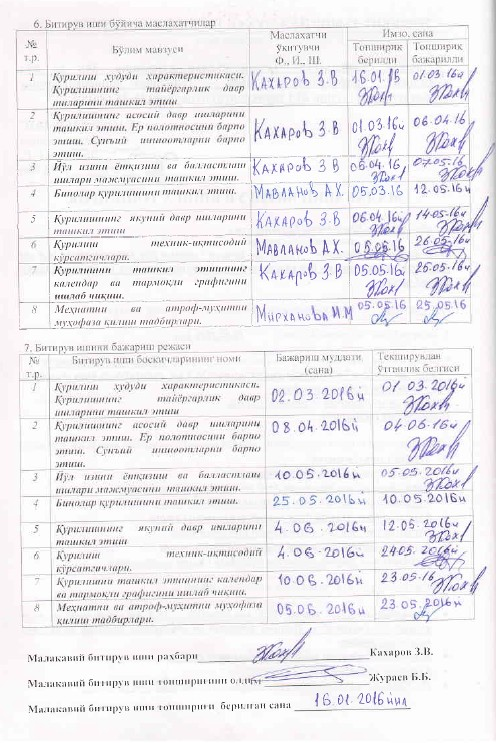 6. Битирув иши бўйича маслахатчилар
№ т.р. Бўлим мавзуси Маслахатчи ўқитувчи Ф., И., Ш. Имзо, сана
Топшириқ берилди Топшириқ бажарилди
1 Қурилиш худуди характеристикаси. Қурилишнинг тайёргарлик давр ишларини ташкил этиш Кахаров З.В 16.01.16 01.03.16й
2 Қурилишнинг асосий давр ишларини ташкил этиш. Ер полотносини барпо этиш. Сунъий иншоотларни барпо этиш. Кахаров З.В 01.03.16й 06.04.16
3 Йўл изини ётқизиш ва балластлаш ишлари мажмуасини ташкил этиш. Кахаров З.В 06.04.16 07.05.16
4 Бинолар қурилишини ташкил этиш. Мавланов А.Х. 05.03.16 12.05.16й
5 Қурилишнинг якуний давр ишларини ташкил этиш Кахаров З.В 06.04.16й 14.05.16й
6 Қурилиш техник-иқтисодий кўрсатгичлари. Мавланов А.Х. 05.05.16 26.05.16й
7 Қурилишни ташкил этишнинг календар ва тармоқли графигини ишлаб чиқиш. Кахаров З.В 05.05.16 25.05.16й
8 Меҳнатни ва атроф-муҳитни муҳофаза қилиш тадбирлари. Мирханова М.М 05.05.16 25.05.16
7. Битирув ишини бажариш режаси
№ т.р. Битирув иши босқичларининг номи Бажариш муддати (сана) Текширувдан ўтганлик белгиси
1 Қурилиш худуди характеристикаси. Қурилишнинг тайёргарлик давр ишларини ташкил этиш 02.03.2016й 01.03.2016й
2 Қурилишнинг асосий давр ишларини ташкил этиш. Ер полотносини барпо этиш. Сунъий иншоотларни барпо этиш. 08.04.2016й 04.06.16й
3 Йўл изини ётқизиш ва балластлаш ишлари мажмуасини ташкил этиш. 10.05.2016й 05.05.2016й
4 Бинолар қурилишини ташкил этиш. 25.05.2016й 10.05.2016й
5 Қурилишнинг якуний давр ишларини ташкил этиш 4.06.2016й 12.05.2016й
6 Қурилиш техник-иқтисодий кўрсатгичлари. 4.06.2016й 2016й
7 Қурилишни ташкил этишнинг календар ва тармоқли графигини ишлаб чиқиш. 10.06.2016й 23.05.16
8 Меҳнатни ва атроф-муҳитни муҳофаза қилиш тадбирлари. 05.06.2016й 23.05.2016й
Малакавий битирув иши раҳбари Кахаров З.В.
Малакавий битирув иши топшириғини олдим Жураев Б.Б.
Малакавий битирув иши топшириғи берилган сана 16.01.2016 йил